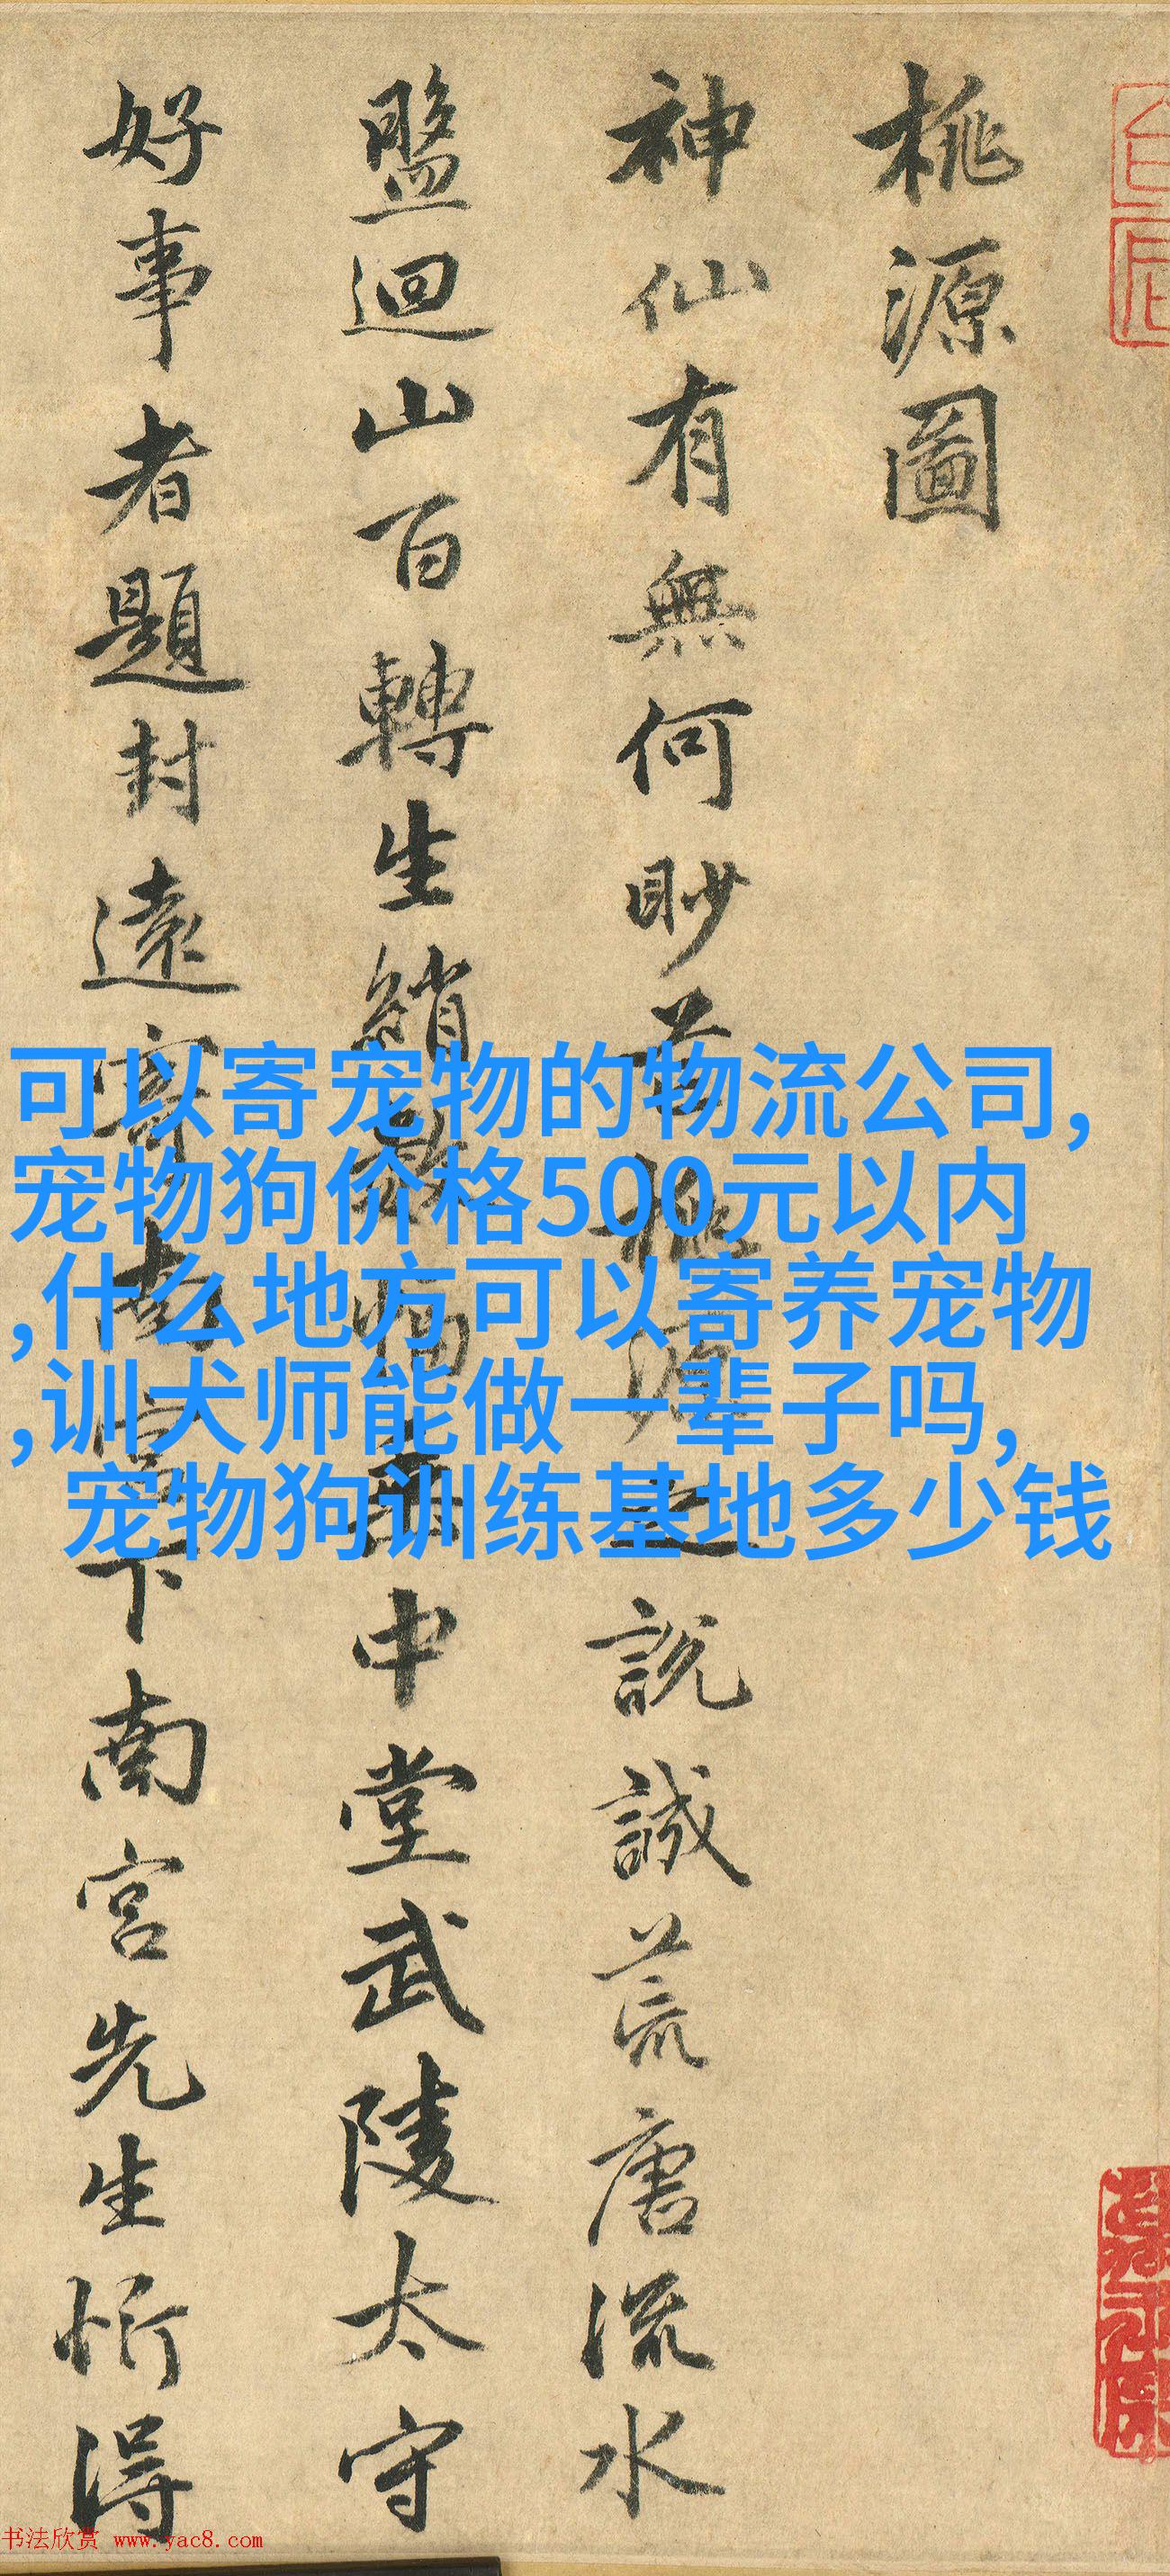 桃源圖
神仙有無何眇芒桃源之說誠荒唐流水
盤迴山百轉生綃數幅垂中堂武陵太守
好事者題封遠寄南宮下南宮先生忻得
可以寄宠物的物流公司,
宠物狗价格500元以内
,什么地方可以寄养宠物
,训犬师能做一辈子吗,
宠物狗训练基地多少钱
书法欣赏 www.yac8.com